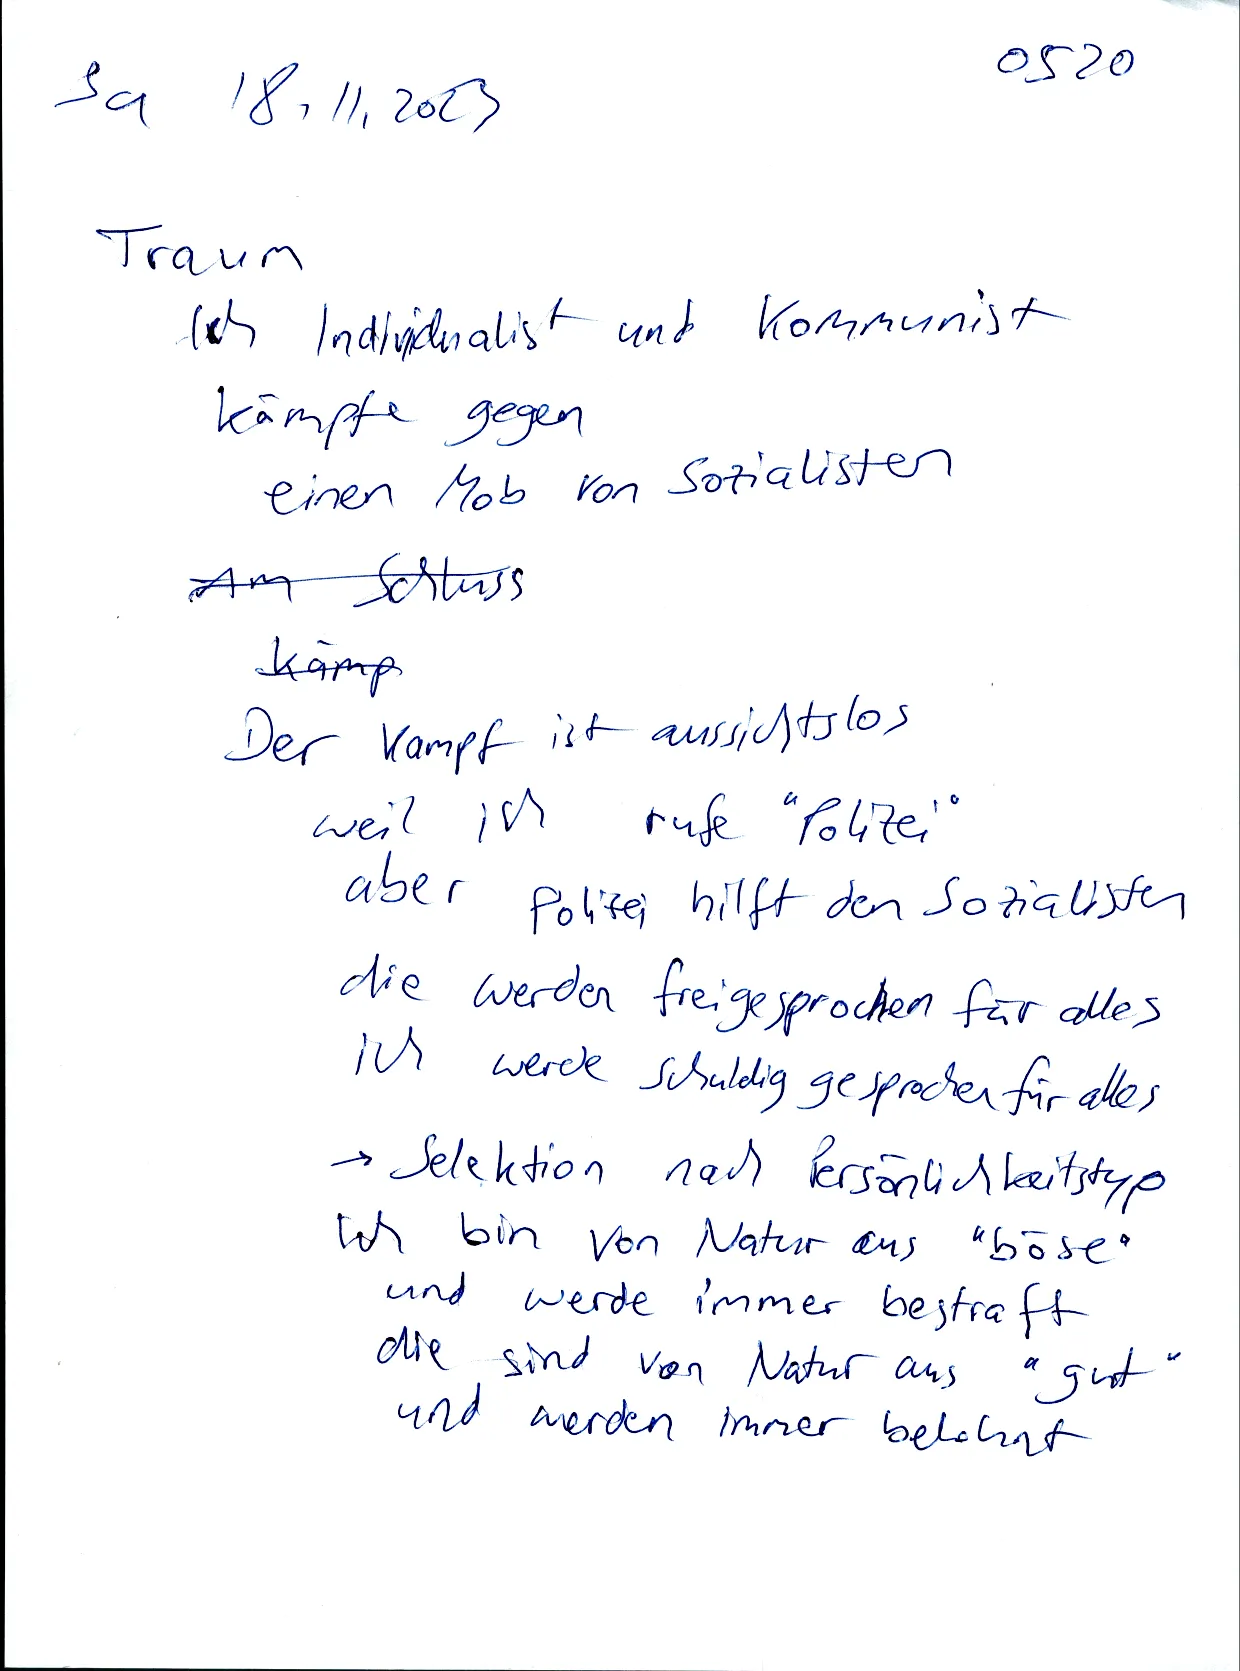 0520
Sa 18.11.2023
Traum
Ich Individualist und Kommunist
kämpfe gegen
einen Mob von Sozialisten
Am Schluss
kämp
Der Kampf ist aussichtslos
weil ich rufe "Polizei"
aber Polizei hilft den Sozialisten
die werden freigesprochen für alles
ich werde schuldig gesprochen für alles
→ Selektion nach Persönlichkeitstyp
Ich bin von Natur aus "böse"
und werde immer bestraft
die sind von Natur aus "gut"
und werden immer belohnt